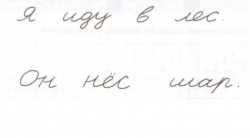 Я иду в лес.
Он нёс шар.